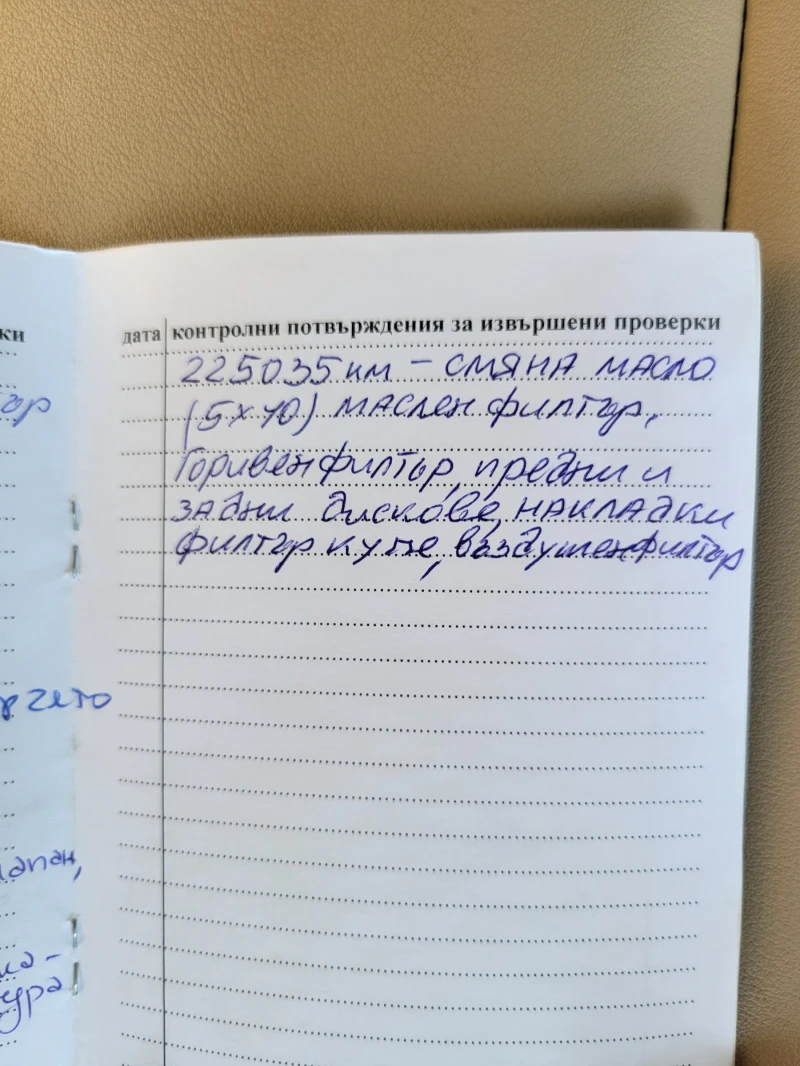 ки
дата контролни потвърждения за извършени проверки
225035 км – смяна масло
(5x40) маслен филтър,
Горивен филтър, предни и
задни дискове, накладки
филтър купе, въздушен филтър